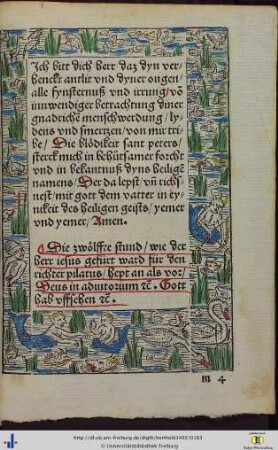 Ich bitt dich herr daz dyn ver⸗
henckt antlit vnd dyner ougen/
alle fynsternuß vnd irrung/ võ
innwendiger betrachtung diner
gnadrichẽ menschwerdung/ ly⸗
dens vnd smertzen/ von mir tri⸗
be/ Die blödikeit sant peters/
sterck mich in behůtsamer forcht
vnd in bekantnuß dyns heiligẽ
namens/ Der da lepst/ vñ richs⸗
nest/ mit gott dem vatter in ey⸗
nikeit des heiligen geists/ yemer
vnd yemer/ Amen.
Die zwölffte stund/ wie der
herr iesus gefürt ward für den
richter pilatus/ hept an als vor/
Deus in adiutorium ꝛc. Gott
hab vffsehen ꝛc.
m 4
© Universitätsbibliothek Freiburg